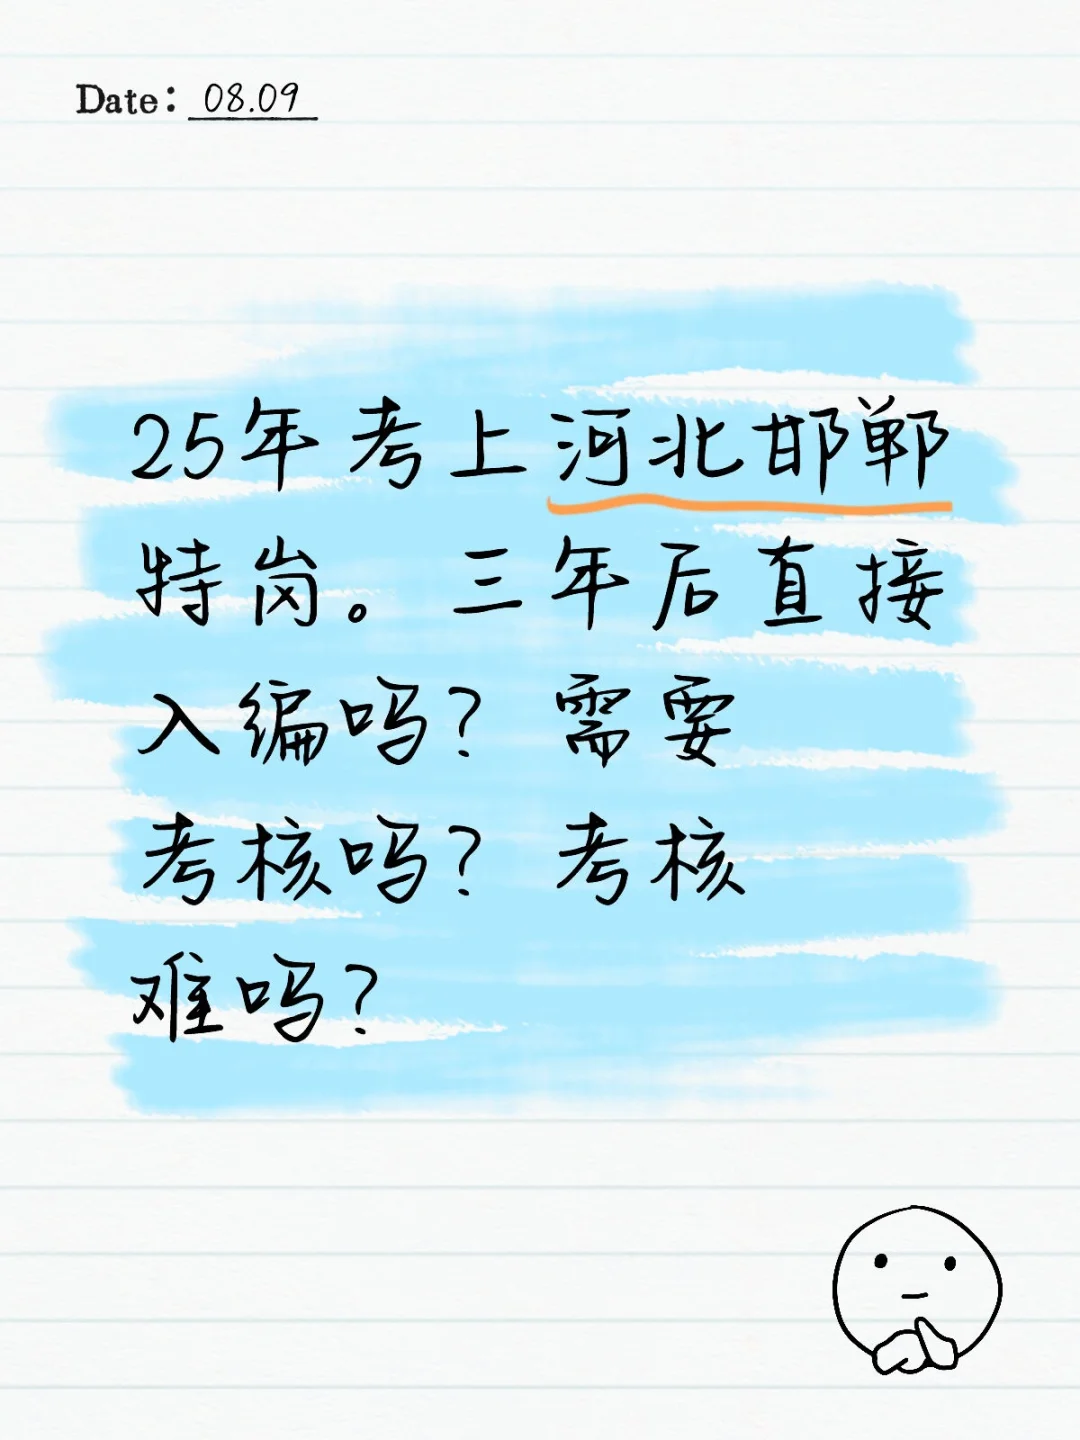 Date: 08.09
25年考上河北邯郸
特岗。三年后直接
入编吗？需要
考核吗？考核
难吗？